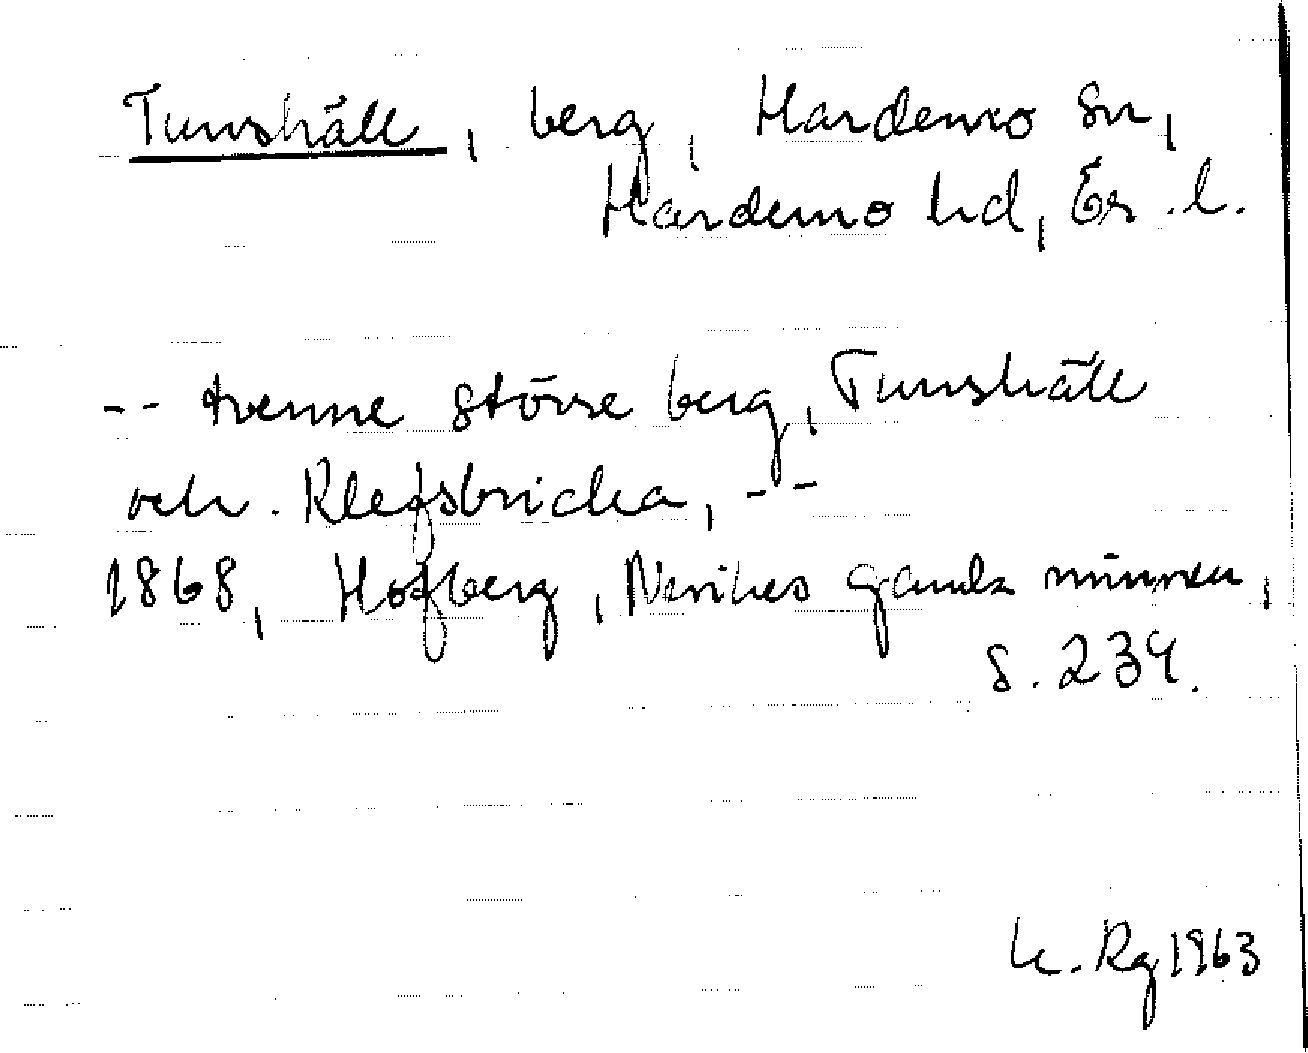 Tunshäll, berg, Hardemo sn,
Hardemo hd, Ör. l.
-- tvenne större berg, Tunshäll
och Klefsbricka, --
1868, Hofberg, Nerikes gamla minnen,
s. 234.
Rg 1963